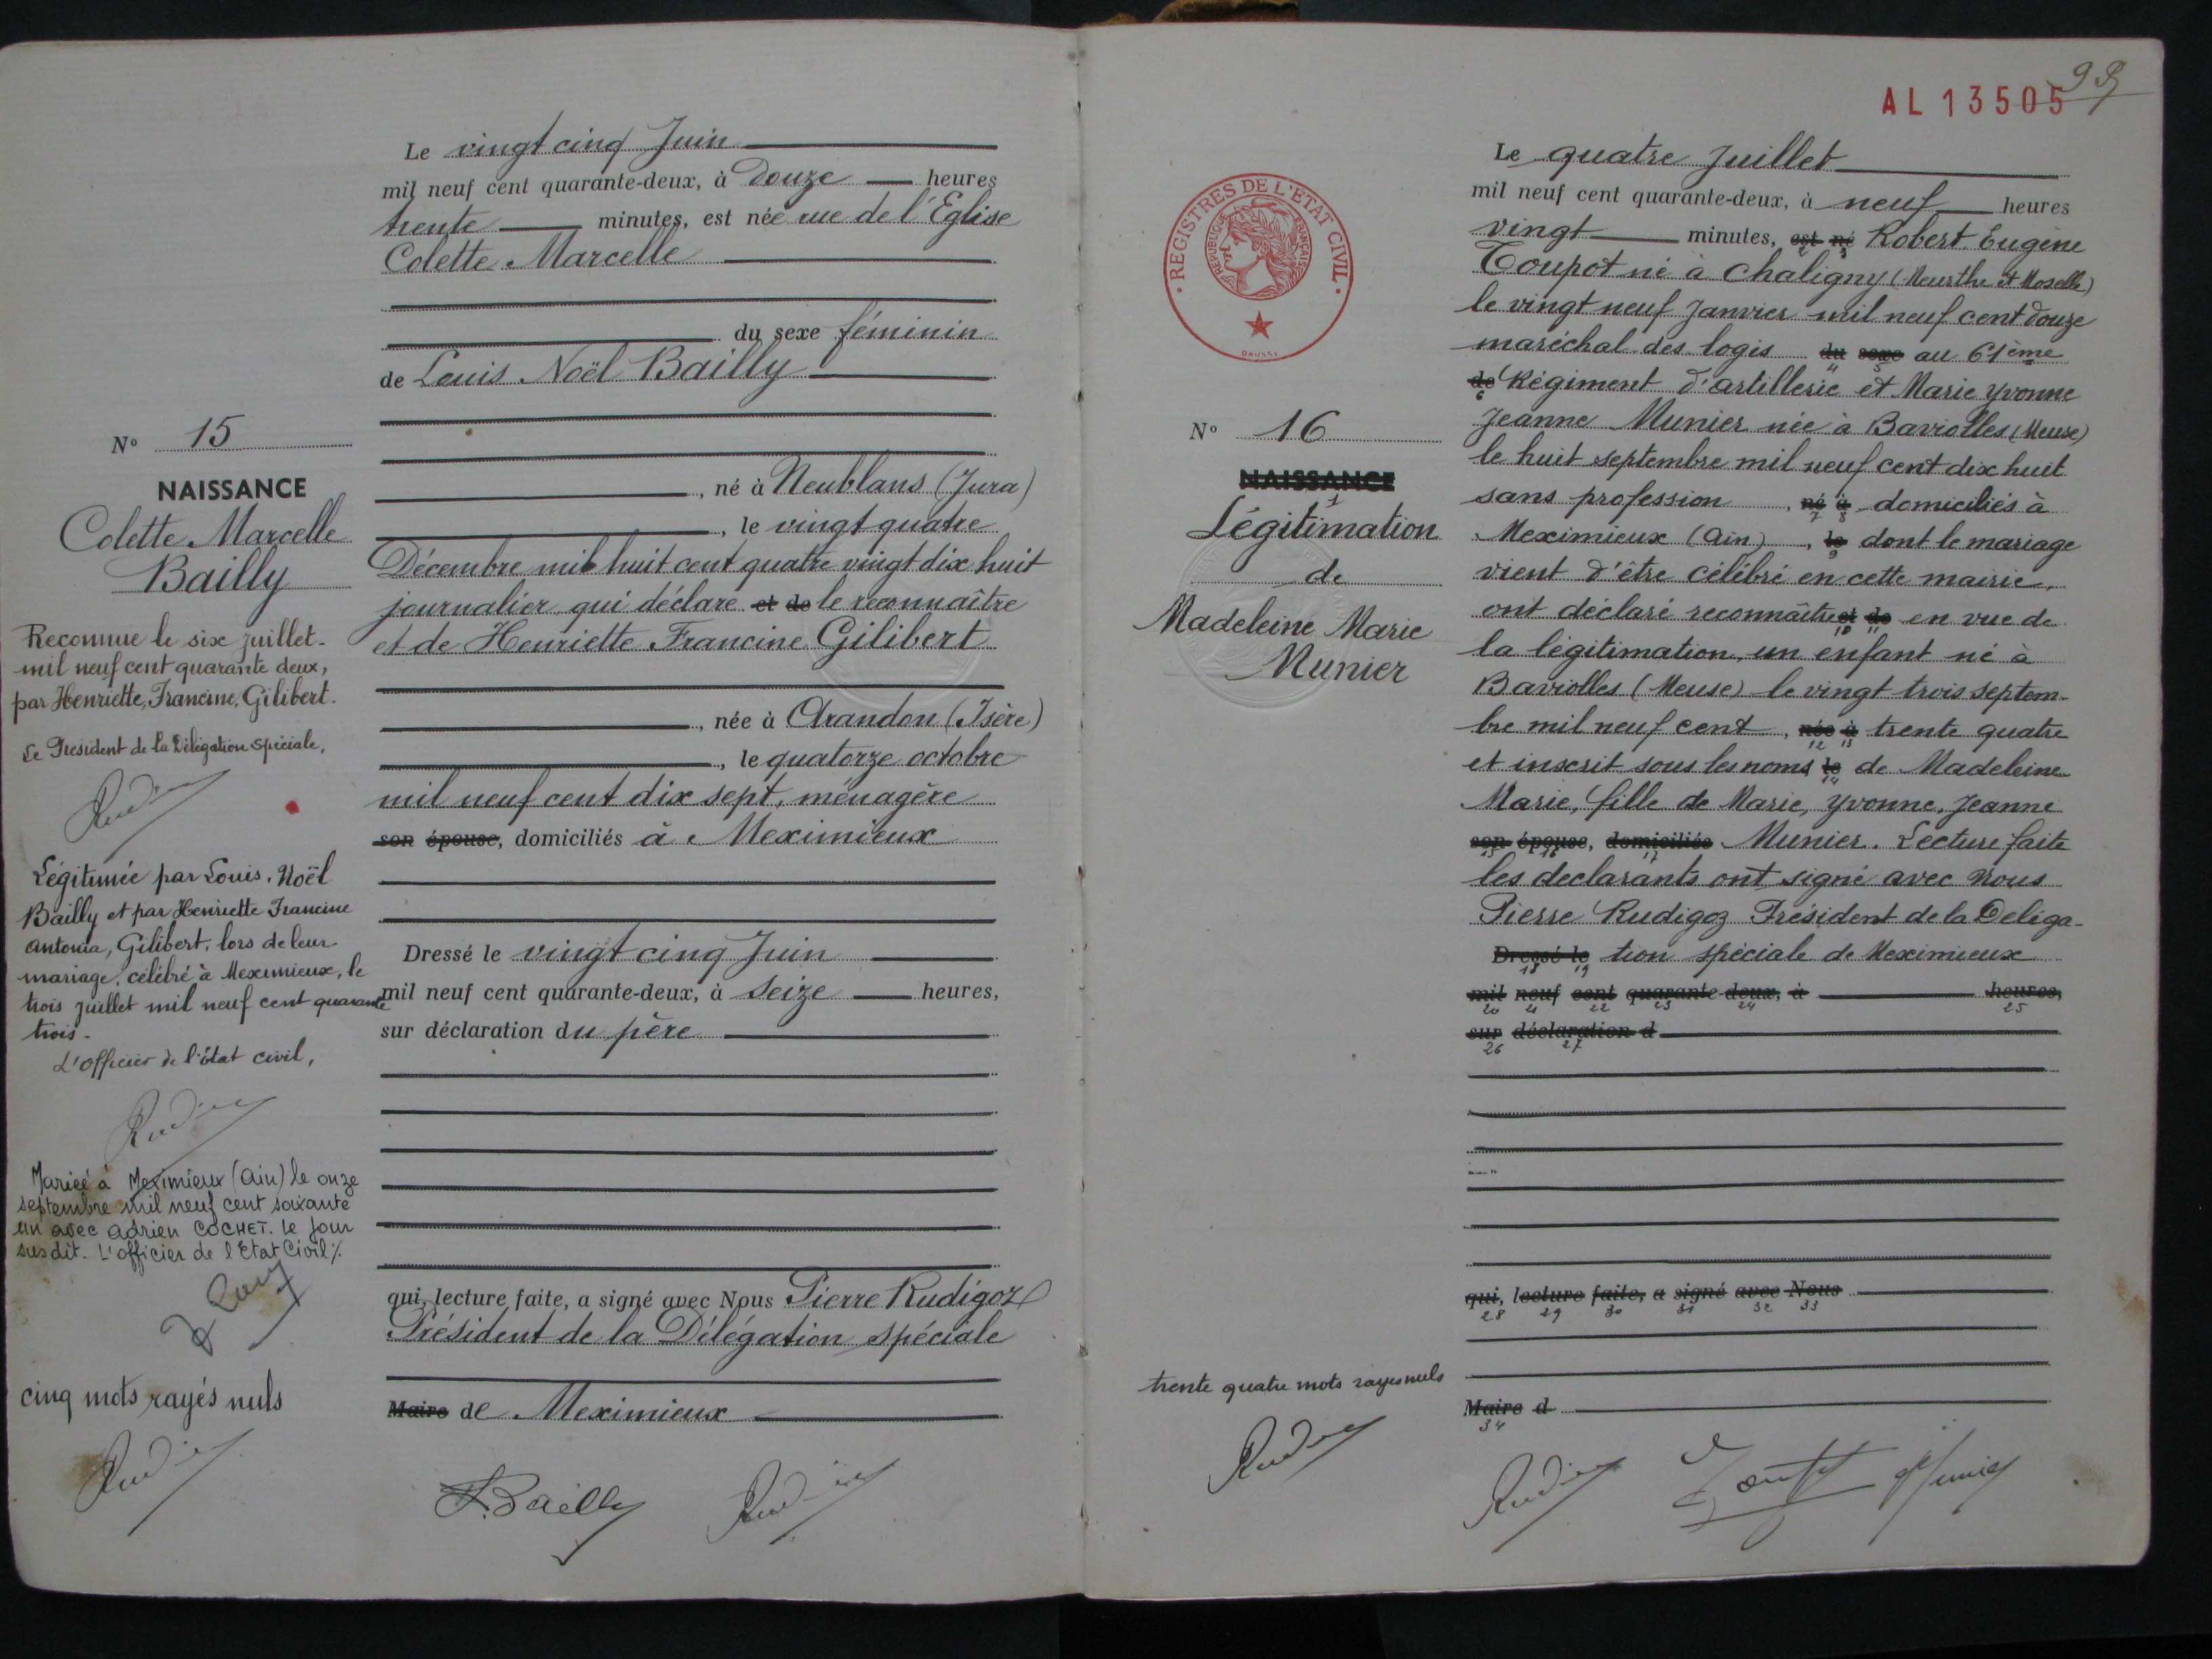 Le vingt cinq Juin
mil neuf cent quarante-deux, à Douze heures
trente minutes, est née rue de l'Eglise
Colette Marcelle
du sexe féminin
de Louis Noël Bailly
N° 15
NAISSANCE
Colette Marcelle
Bailly
, né à Neublans (Jura)
, le vingt quatre
Décembre mil huit cent quatre vingt dix huit
journalier qui déclare et de le reconnaître
et de Henriette Francine Gilibert
, née à Arandon (Isère)
, le quatorze octobre
mil neuf cent dix sept, ménagère
son épouse, domiciliés à Meximieux
Dressé le vingt cinq Juin
mil neuf cent quarante-deux, à seize heures,
sur déclaration du père
qui, lecture faite, a signé avec Nous Pierre Rudigoz
Président de la Délégation spéciale
Maire de Meximieux
L. Bailly
Reconnue le six juillet
mil neuf cent quarante deux,
par Henriette, Francine, Gilibert.
Le Président de la Délégation spéciale,
Légitimée par Louis, Noël
Bailly et par Henriette Francine
Antonia, Gilibert, lors de leur
mariage, célébré à Meximieux, le
trois juillet mil neuf cent quarante
trois.
L'officier de l'état civil,
Mariée à Meximieux (Ain) le onze
septembre mil neuf cent soixante
un avec Adrien COCHET. le jour
susdit. L'officier de l'Etat Civil ./.
cinq mots rayés nuls
AL 13505
REGISTRES DE L'ETAT CIVIL
REPUBLIQUE FRANÇAISE
N° 16
NAISSANCE
1
Légitimation
de
Madeleine Marie
Munier
Le quatre Juillet
mil neuf cent quarante-deux, à neuf heures
vingt minutes, est né Robert Eugène
2 3
Toupot né à Chaligny (Meurthe et Moselle)
le vingt neuf Janvier mil neuf cent douze
maréchal des logis du sexe au 61ème
4 5
de Régiment d'artillerie et Marie Yvonne
6
Jeanne Munier née à Baviolles (Meuse)
le huit septembre mil neuf cent dix huit
sans profession , né à domiciliés à
7 8
Meximieux (Ain) , le dont le mariage
9
vient d'être célébré en cette mairie,
ont déclaré reconnaître et de en vue de
10 11
la légitimation, un enfant né à
Baviolles (Meuse) le vingt trois septem-
bre mil neuf cent , née à trente quatre
12 13
et inscrit sous les noms le de Madeleine
14
Marie, fille de Marie, Yvonne, Jeanne
son épouse, domiciliés Munier. Lecture faite
15 16 17
les déclarants ont signé avec Nous
Pierre Rudigoz Président de la Déléga-
Dressé le tion spéciale de Meximieux
18 19
mil neuf cent quarante-deux, à heures,
20 21 22 23 24 25
sur déclaration d
26 27
qui, lecture faite, a signé avec Nous
28 29 30 31 32 33
Maire d
34
trente quatre mots rayés nuls